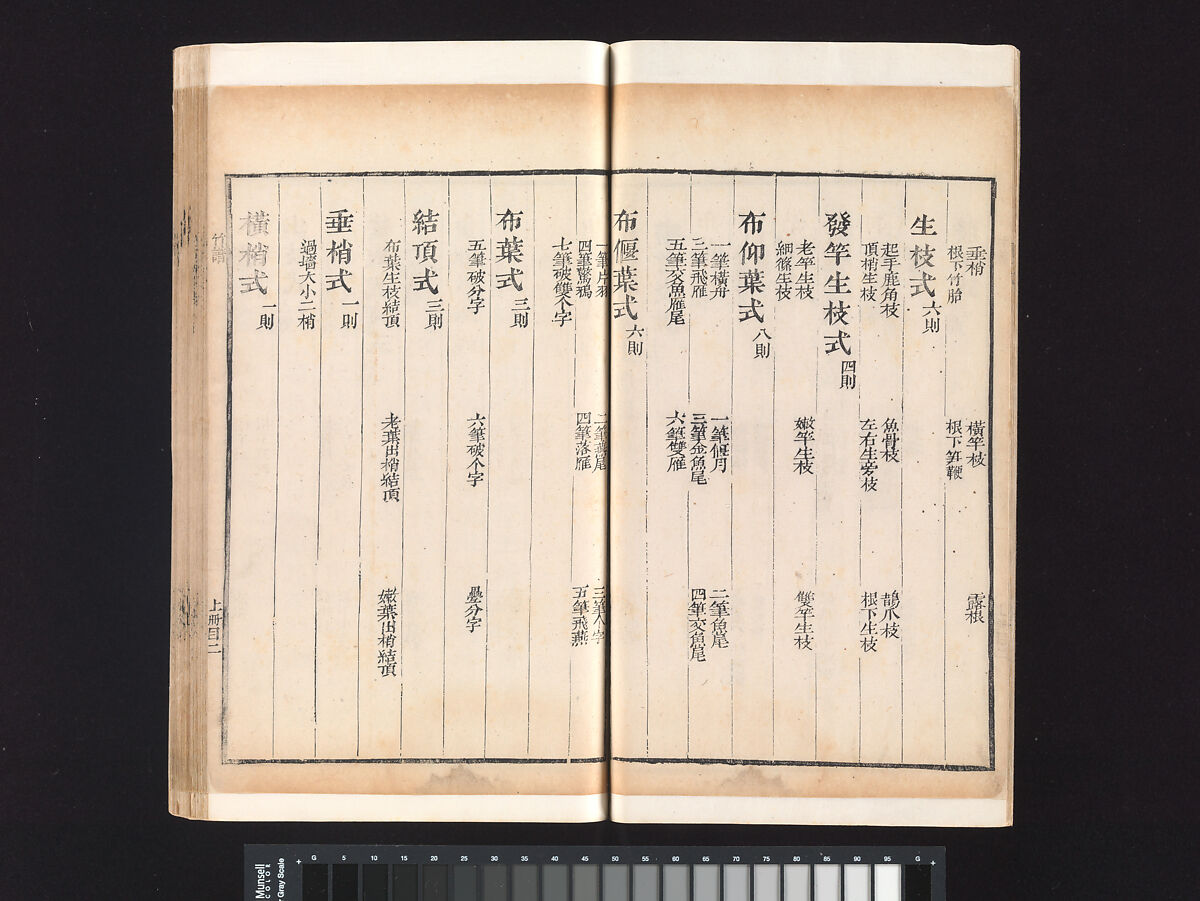 垂梢 橫竿枝 露根
根下竹胎 根下笋鞭
生枝式 六則
起手鹿角枝 魚骨枝 鵲爪枝
頂梢生枝 左右生旁枝 根下生枝
發竿生枝式 四則
老竿生枝 嫩竿生枝 雙竿生枝
細篠生枝
布仰葉式 八則
一筆橫舟 一筆偃月 二筆魚尾
三筆飛雁 三筆金魚尾 四筆交魚尾
五筆交魚雁尾 六筆雙雁
布偃葉式 六則
一筆片羽 二筆燕尾 三筆个字
四筆驚鴉 四筆落雁 五筆飛燕
七筆破雙个字
布葉式 三則
五筆破分字 六筆破个字 疊分字
結頂式 三則
布葉生枝結頂 老葉出梢結頂 嫩葉出梢結頂
垂梢式 一則
過墻大小二梢
橫梢式 一則
竹譜
上冊目二
Munsell
COLOR
Gray Scale
G 5 10 15 20 30 35 40 45 50 55 60 65 70 75 80 85 90 95 G